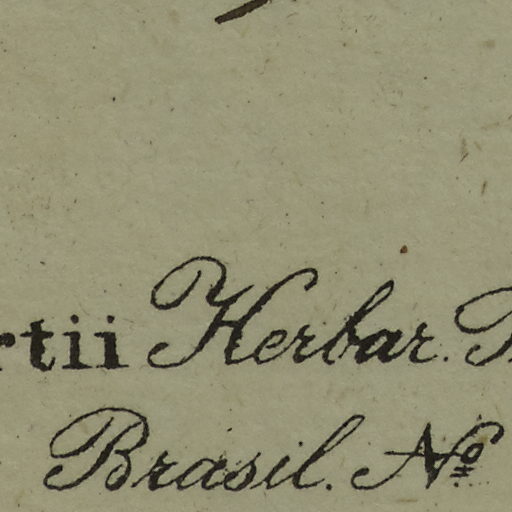 rtii Herbar.
Brasil. Nº